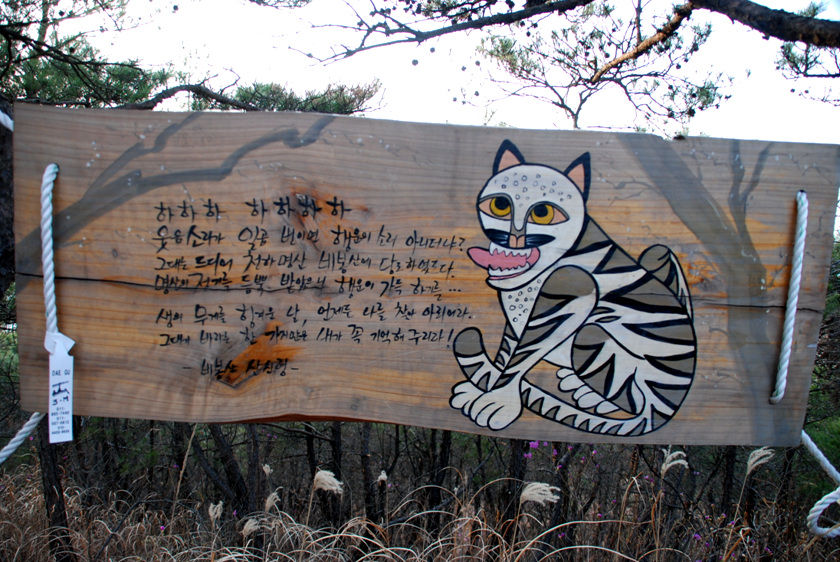 하하하 하하하하
웃음소리가 일곱 번이면 행운의 소리 아니더냐?
그대는 드디어 천하명산 비봉산에 당도하였도다.
명산의 정기를 듬뿍 받았으니 행운이 가득 하기를...
생의 무게를 힘겨운 날, 언제든 나를 찾아 오리어라.
그대의 바라는 한 가지만은 내가 꼭 기억해 두리라!
- 비봉산 산신령 -
DAE GU